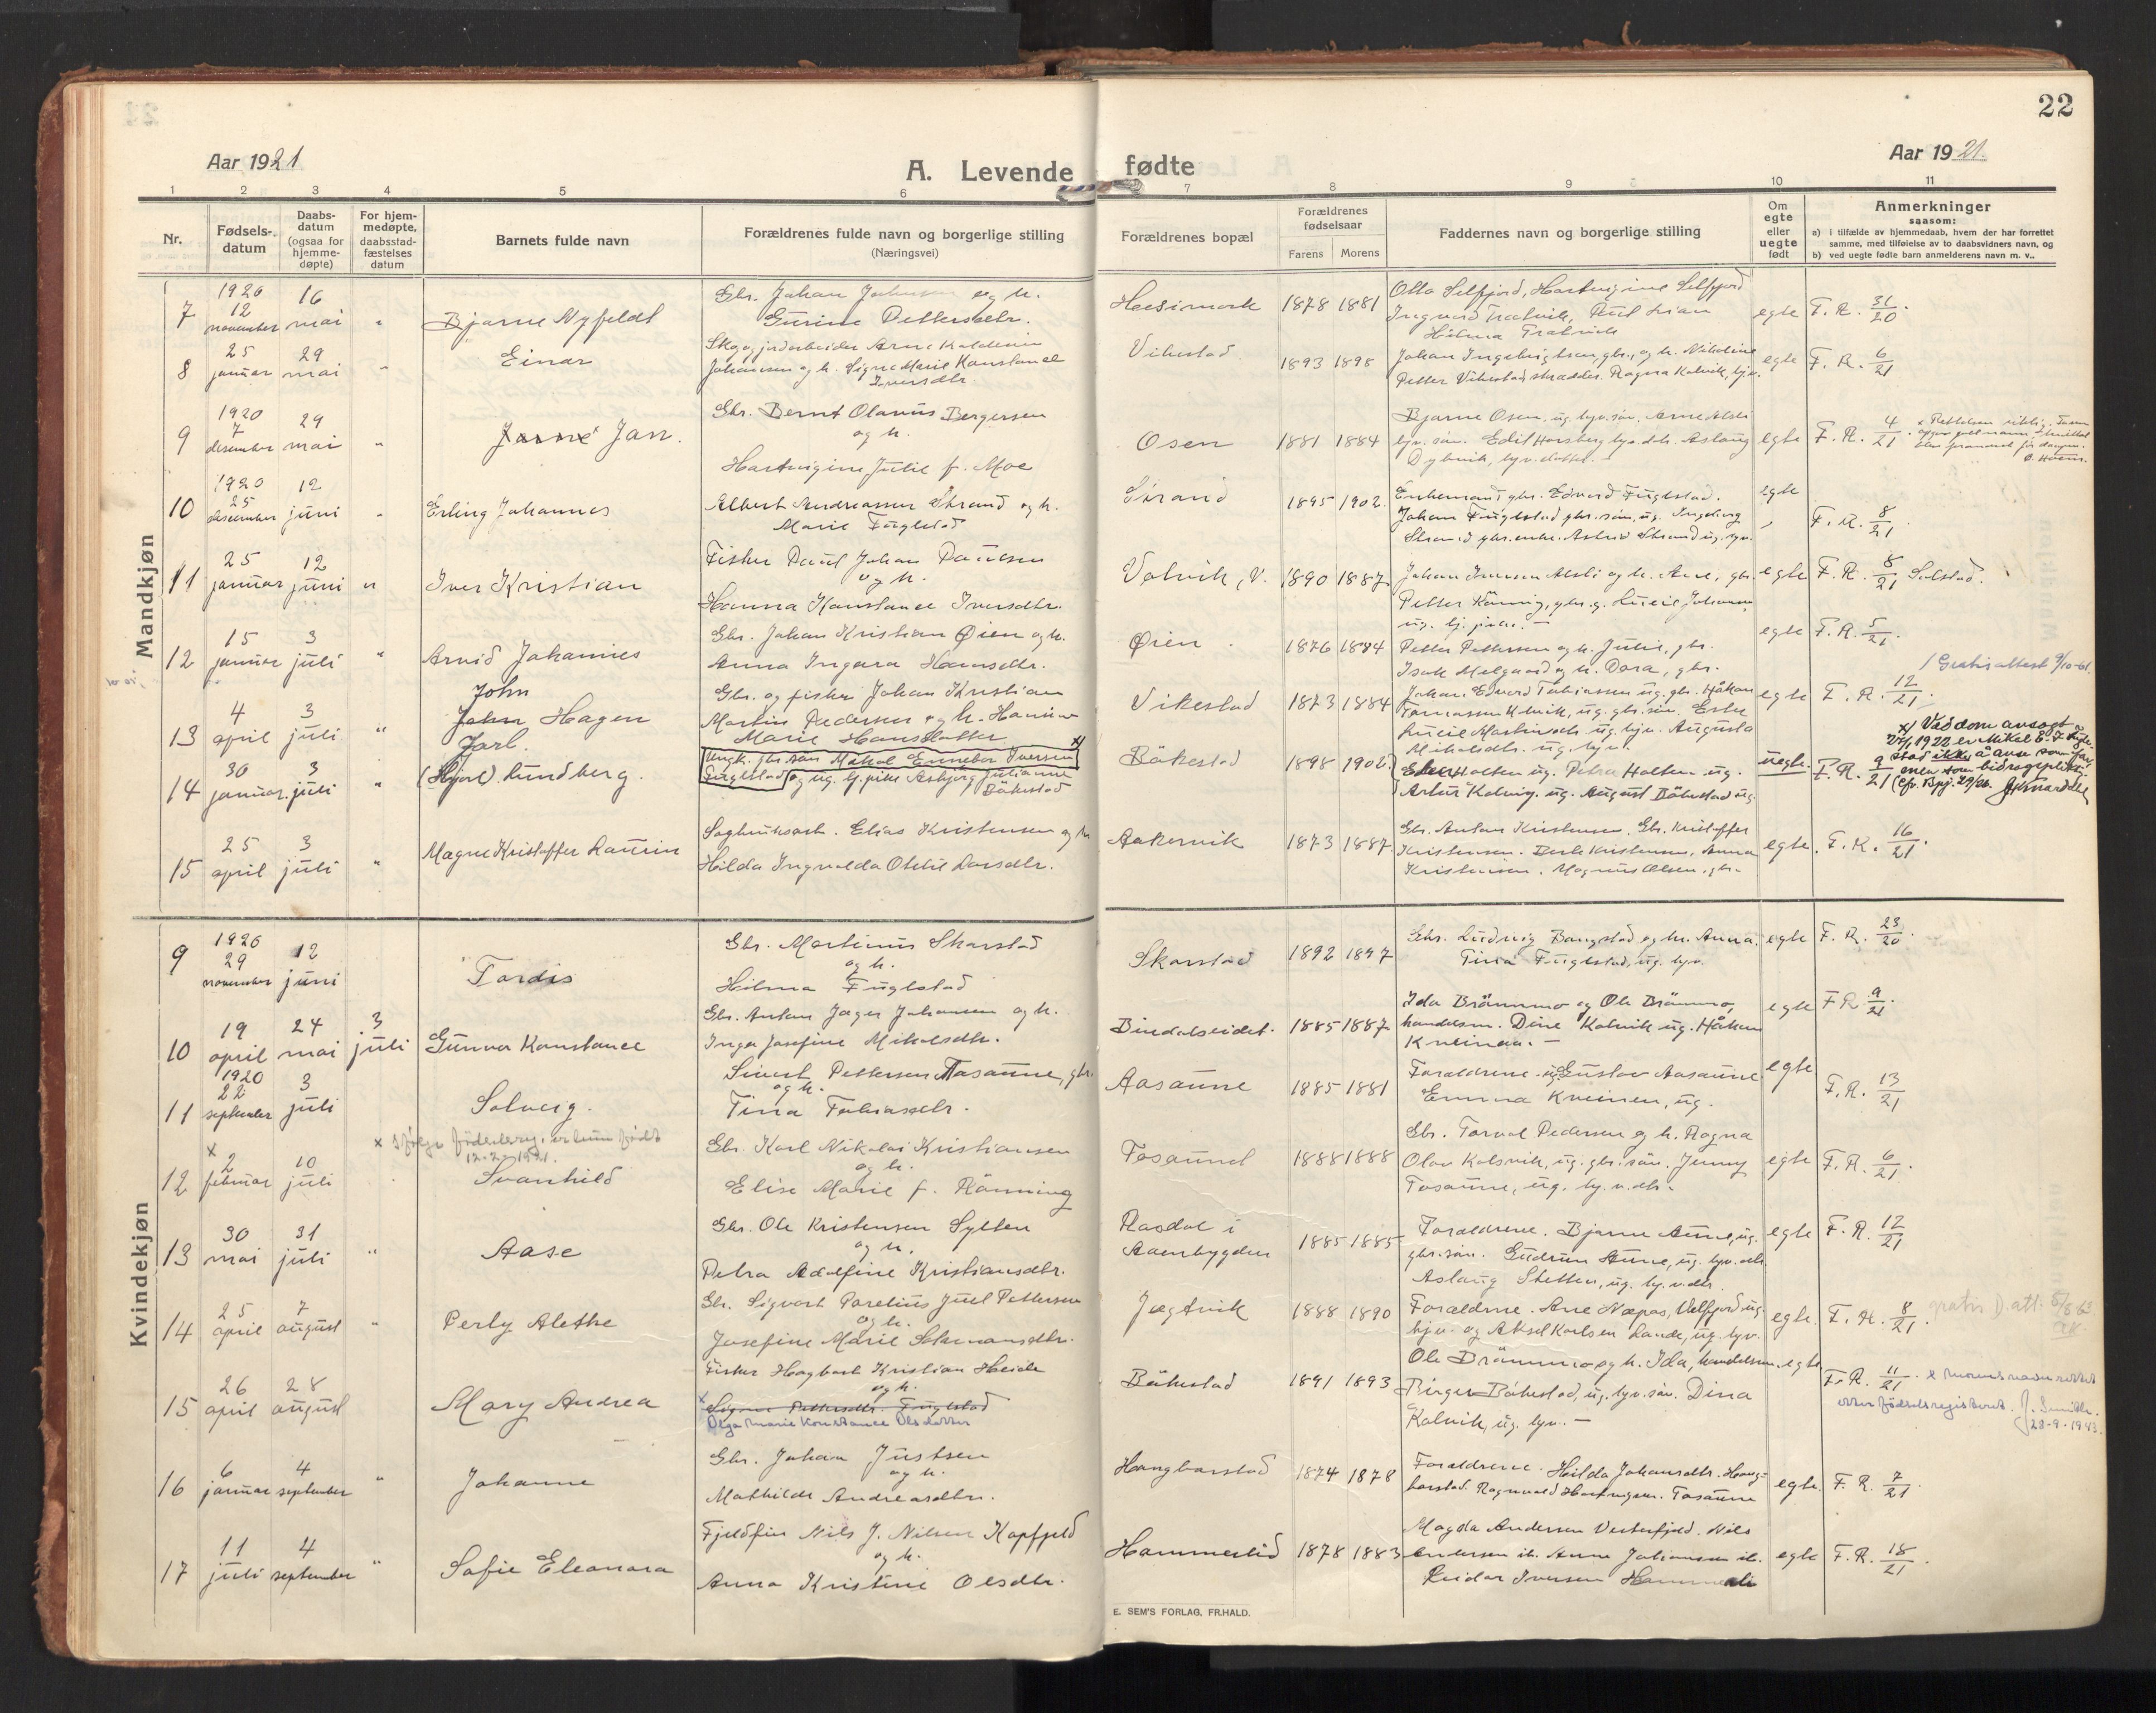 22
Aar 1921
A. Levende fødte
Aar 1921.
1 2 3 4 5 6 7 8 9 10 11
Nr.
Fødsels-datum
Daabs-datum (ogsaa for hjemme-døpte)
For hjem-medøpte, daabsstad-fæstelses datum
Barnets fulde navn
Forældrenes fulde navn og borgerlige stilling
(Næringsvei)
Forældrenes bopæl
Forældrenes fødselsaar
Farens Morens
Faddernes navn og borgerlige stilling
Om egte eller uegte født
Anmerkninger
saasom:
a) i tilfælde av hjemmedaab, hvem der har forrettet
samme, med tilføielse av to daabsvidners navn, og
b) ved uegte fødte barn anmelderens navn m. v..
Mandkjøn
7 1920 12 november 16 mai " Bjarne Nyfeldt
Gbr. Johan Johnsen og h.
Gurine Pettersdtr.
Heisimark 1878 1881
Otto Selfjord, Hartvigine Selfjord
Hilma
egte F. R. 31/20.
8 25 januar 29 mai " Einar
Skog, jordarbeider Arne
Johansen og h. Signe Marie Konstance
Iversdtr.
Vikestad 1893 1898
Johan Ingebrigtsen, gbr., og h. Nikoline
Petter Vikestad, skrædder. Ragna Kolvik, tj.v.
egte F. R. 6/21
9 1920 7 desember 29 mai " Jarne Jan.
Gbr. Bernt Olavus Bergersen
og h.
Hartvigine Julie f. Moe
Osen 1881 1884
Bjarne Osen, ug. tyv. søn. Arne
tyv. søn. Edit Horsberg tyv. dtr. Aslaug
Dybvik, tyv. datter.
egte F. R. 4/21.
10 1920 25 desember 12 juni " Erling Johannes
Albert Andreassen Strand og h.
Marie Fuglstad
Strand 1895 1902.
Enkemand, gbr. Edvard Fuglstad.
Johan Fuglstad gbr. søn, ug. Ingeborg
Strand gbr. enke. Astrid Strand ug. tyv.
egte F. R. 8/21.
11 25 januar 12 juni " Iver Kristian
Fisker Paul Johan Paulsen
og h.
Hanna Konstance Iversdtr.
Valvik, V. 1890 1887
Johan Iversen Alsli og h. Ane, gbr.
Petter Rönnig, gbr. g. Lucie Johansen,
ug. tj. pike. —
egte F. R. 8/21 Solstad.
12 15 januar 3 juli " Arvid Johannes
Gbr. Johan Kristian Øien og h.
Anna Ingara Hansdtr.
Øien. 1876 1884
Petter Pettersen og h. Julie, gbr.
Isak Melgaard og h. Dora, gbr.
egte F. R. 5/21.
/ Gratisattest 9/10-61.
13 4 april 3 juli " John
John Hagen
Gbr. og fisker Johan Kristian
Martin Pedersen og h. Hanna
Marie Hansdatter
Vikestad 1873 1884
Johan Edvard Tobiassen ug. gbr. Håkon
Tomassen Kolvik, ug. gbr. søn. Ester
Lucie Martinsdtr ug. tyv. Augusta
Mikalsdtr. ug. tyv.
egte F. R. 12/21.
14 30 januar. 3 juli " Jarl.
(Hjarl) Lundberg.
Ungk. gbr. søn Mikal Ennebor Iversen x)
Fuglestad og ug. tj. pike Asbjørg Julianne
Båkestad
Båkestad 1898 1902.
Holten ug. Petra Holten ug.
Artur Kolvig. ug. August Båkestad ug.
uegte. F. R. 9/21
x) Ved dom avsagt
27/1 1922 er Mikal E. I. Fugle-
stad ikke å anse som far
men som bidragspliktig
(cfr. Bpj. 29/26.
15 25 april 3 juli " Magne Kristoffer Laurin
Sagbruksarb. Elias Kristensen og h.
Hilda Ingvalda Otilie Larsdtr.
Aakervik 1873 1887
Gbr. Anton Kristensen. Gbr. Kristoffer
Kristensen. Berte Kristensen, Anna
Kristensen. Magnus Olsen, gbr.
egte. F. R. 16/21.
Kvindekjøn
9 1920 29 november 12 juni Tordis
Gbr. Martinus Skarstad
og h.
Hilma Fuglstad
Skarstad 1892 1897
Gbr. Ludvig Bangstad og h. Anna.
Tina Fuglstad, ug. tyv.
egte F. R. 23/20.
10 19 april 24 mai 3 juli Gunvor Konstance
Gbr. Anton Jæger Johansen og h.
Inga Josefine Mikalsdtr.
Bindalseidet. 1885 1887
Ida Brännmo og Ole Brännmo,
handelsm. Dine Kolvik ug. Håkon
Kveinaa. —
egte F R 9/21.
11 1920 22 september 3 juli Solveig.
Sivert Pettersen Aasaune, gbr.
og h.
Tina Tobiasdtr.
Aasaune 1885 1881
Forældrene. ug. Gustav Aasaune
Emma Kveinen, ug.
egte F. R. 13/21
x Ifølge fødselsreg. er hun født
12-2-1921.
12 x 2 februar 10 juli Svanhild
Gbr. Karl Nikolai Kristiansen
og h.
Elise Marie f. Rönning
Tosaunet 1888 1888
Gbr. Torvol Pedersen og h. Ragna
Olav Kolsvik, ug. gbr. søn. Jenny
Tosaune, ug. ty. v. dtr.
egte F. R. 6/21.
13 30 mai 31 juli " Aase
Gbr. Ole Kristensen Sylten
og h.
Petra Adolfine Kristiansdtr.
Aasdal i
Aaenbygden 1885 1885
Forældrene. Bjarne Aune, ug.
gbr. søn. Gudrun Aune, ug. tyv. dtr.
Aslaug Sletten, ug. ty. v. dtr.
egte F. R. 12/21
14 25 april 7 august " Perly Alethe
Gbr. Sigvart Parelius Juel Pettersen
og h.
Josefine Marie Salamonsdtr.
Jægtvik 1888 1890
Forældrene. Ane Næpas, Velfjord ug.
tj.v. og Aksel Karlsen Lande, ug. tyv.
egte. F. R. 8/21. gratis D. att. 5/8 63
15 26 april 28 august Mary Andrea
Fisker Hagbart Kristian Heide
og h.
x Signe Pettersdtr. Fuglstad
Olga Marie Konstance Olsdatter
Båkestad 1891 1893
Ole Brännmo og h. Ida, handelsm.
Birger Båkestad, ug. tyv. søn. Dina
Kolvik, ug. tyv. —
egte F. R. 11/21. x morens navn rettet
etter fødselsregisteret.
28-9-1943.
16 6 januar 4 september " Johanne
Gbr. Johan Justsen
og h.
Mathilde Andreasdtr.
Hangbarstad 1874 1878
Forældrene. Hilda Johansdtr. Hang-
barstad. Ragnvald Hartvigsen. Tosaune
egte. F. R. 7/21.
17 11 juli 4 september " Sofie Eleonora
Fjeldfin Nils J. Nilsen Kapfjeld
og h.
Anna Kristine Olsdtr.
Hammerlid 1878 1883
Magda Andersen Vesterfjeld. Nils
Andersen ib. Anne Johansen ib.
Reidar Iversen Hammerli
egte F. R. 18/21.
E. SEM'S FORLAG, FR.HALD.